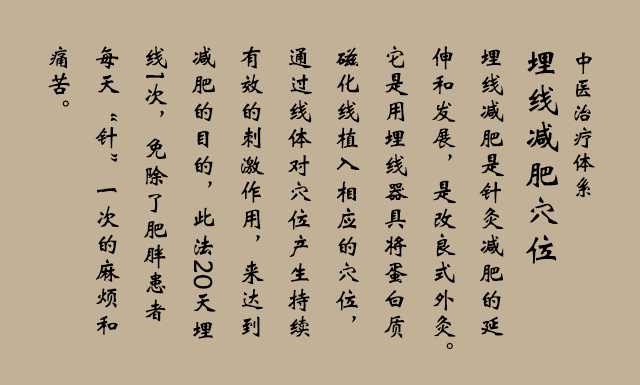 中医治疗体系
埋线减肥穴位
埋线减肥是针灸减肥的延
伸和发展，是改良式外灸。
它是用埋线器具将蛋白质
磁化线植入相应的穴位，
通过线体对穴位产生持续
有效的刺激作用，来达到
减肥的目的，此法20天埋
线1次，免除了肥胖患者
每天“针”一次的麻烦和
痛苦。